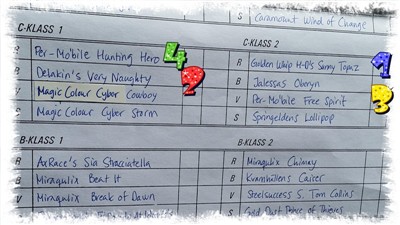 S Caramount Wind of Change
C-KLASS 1
R Per-Mobile Hunting Hero 4
B Delakin's Very Naughty 2
V Magic Colour Cyber Cowboy
S Magic Colour Cyber Storm
C-KLASS 2
R Golden Whip H-D's Sunny Topaz 1
B Jalessas Oberyn
V Per-Mobile Free Spirit 3
S Springeldens Lollipop
B-KLASS 1
R AxRace's Sin Stracciatella
B Miragulix Beat It
V Miragulix Break of Dawn
B-KLASS 2
R Miragulix Chimay
B Kvarnhüllens Caiser
V Steelsuccess S. Tom Collins
S Gold Dust Prince of Thieves